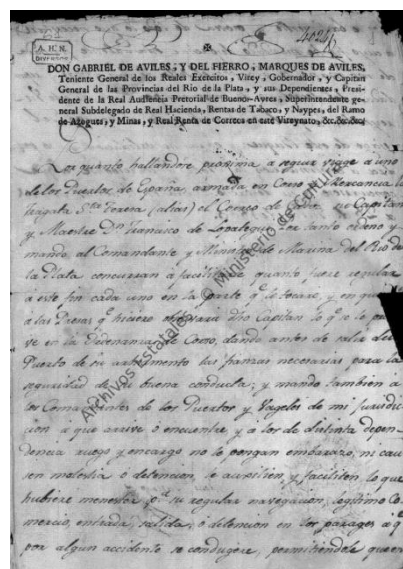 4024
A.H.N.
DIVERSOS
DON GABRIEL DE AVILES, Y DEL FIERRO, MARQUES DE AVILES,
Teniente General de los Reales Exercitos, Virey, Gobernador, y Capitan
General de las Provincias del Rio de la Plata, y sus Dependientes, Presi-
dente de la Real Audiencia Pretorial de Buenos-Ayres, Superintendente ge-
neral Subdelegado de Real Hacienda, Rentas de Tabaco, y Naypes, del Ramo
de Azogues, y Minas, y Real Renta de Correos en este Vireynato, &c.&c.&c.
Por quanto hallandose proxima a seguir viage a uno
de los Puertos de España, armada en Corso y Mercancia la
fragata Sta. Teresa (alias) el Correo de Capitan
y Maestre Dn. Francisco de Por tanto ordeno y
mando al Comandante y Ministro de Marina del Rio de
la Plata concurran à facilitar quanto fuere regular
à este fin cada uno en la parte q.e le tocare, y en quanto
à las Presas q.e hiciere observará dho Capitan lo q.e se
ve en la Ordenanza de Corso, dando antes de salir del
Puerto de su armamento las fianzas necesarias para la
seguridad de su buena conducta; y mando tambien a
los Comandantes de los Puertos y Vageles de mi jurisdic
cion a que arrive ó encuentre, y à los de distinta depen
dencia ruego y encargo no le pongan embarazo, ni cau
sen molestia ó detencion, le auxilien, y faciliten lo que
hubiere menester, p.a su regular navegacion, legitimo Co
mercio, entrada, salida, ó detencion en los parages a q.e
por algun accidente se condugere, permitiendole que en
Archivos Estatales, © Ministerio de Cultura